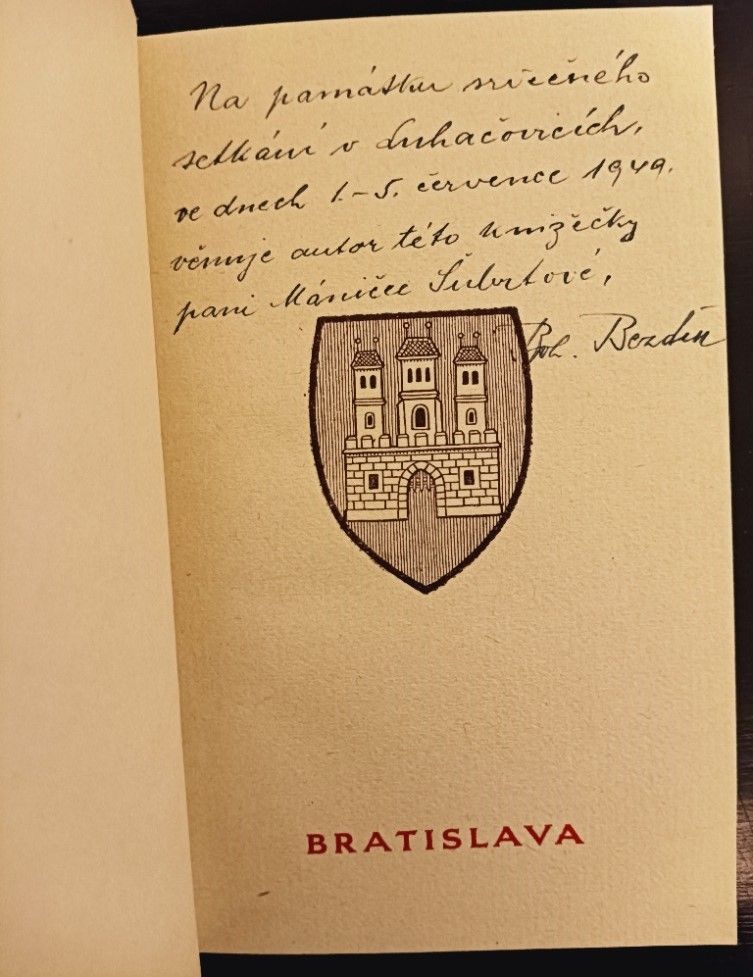 Na památku srdečného
setkání v Luhačovicích,
ve dnech 1.–5. července 1949.
věnuje autor této knížečky
paní Máničce Šubrtové,
Boh. Bezděk
BRATISLAVA